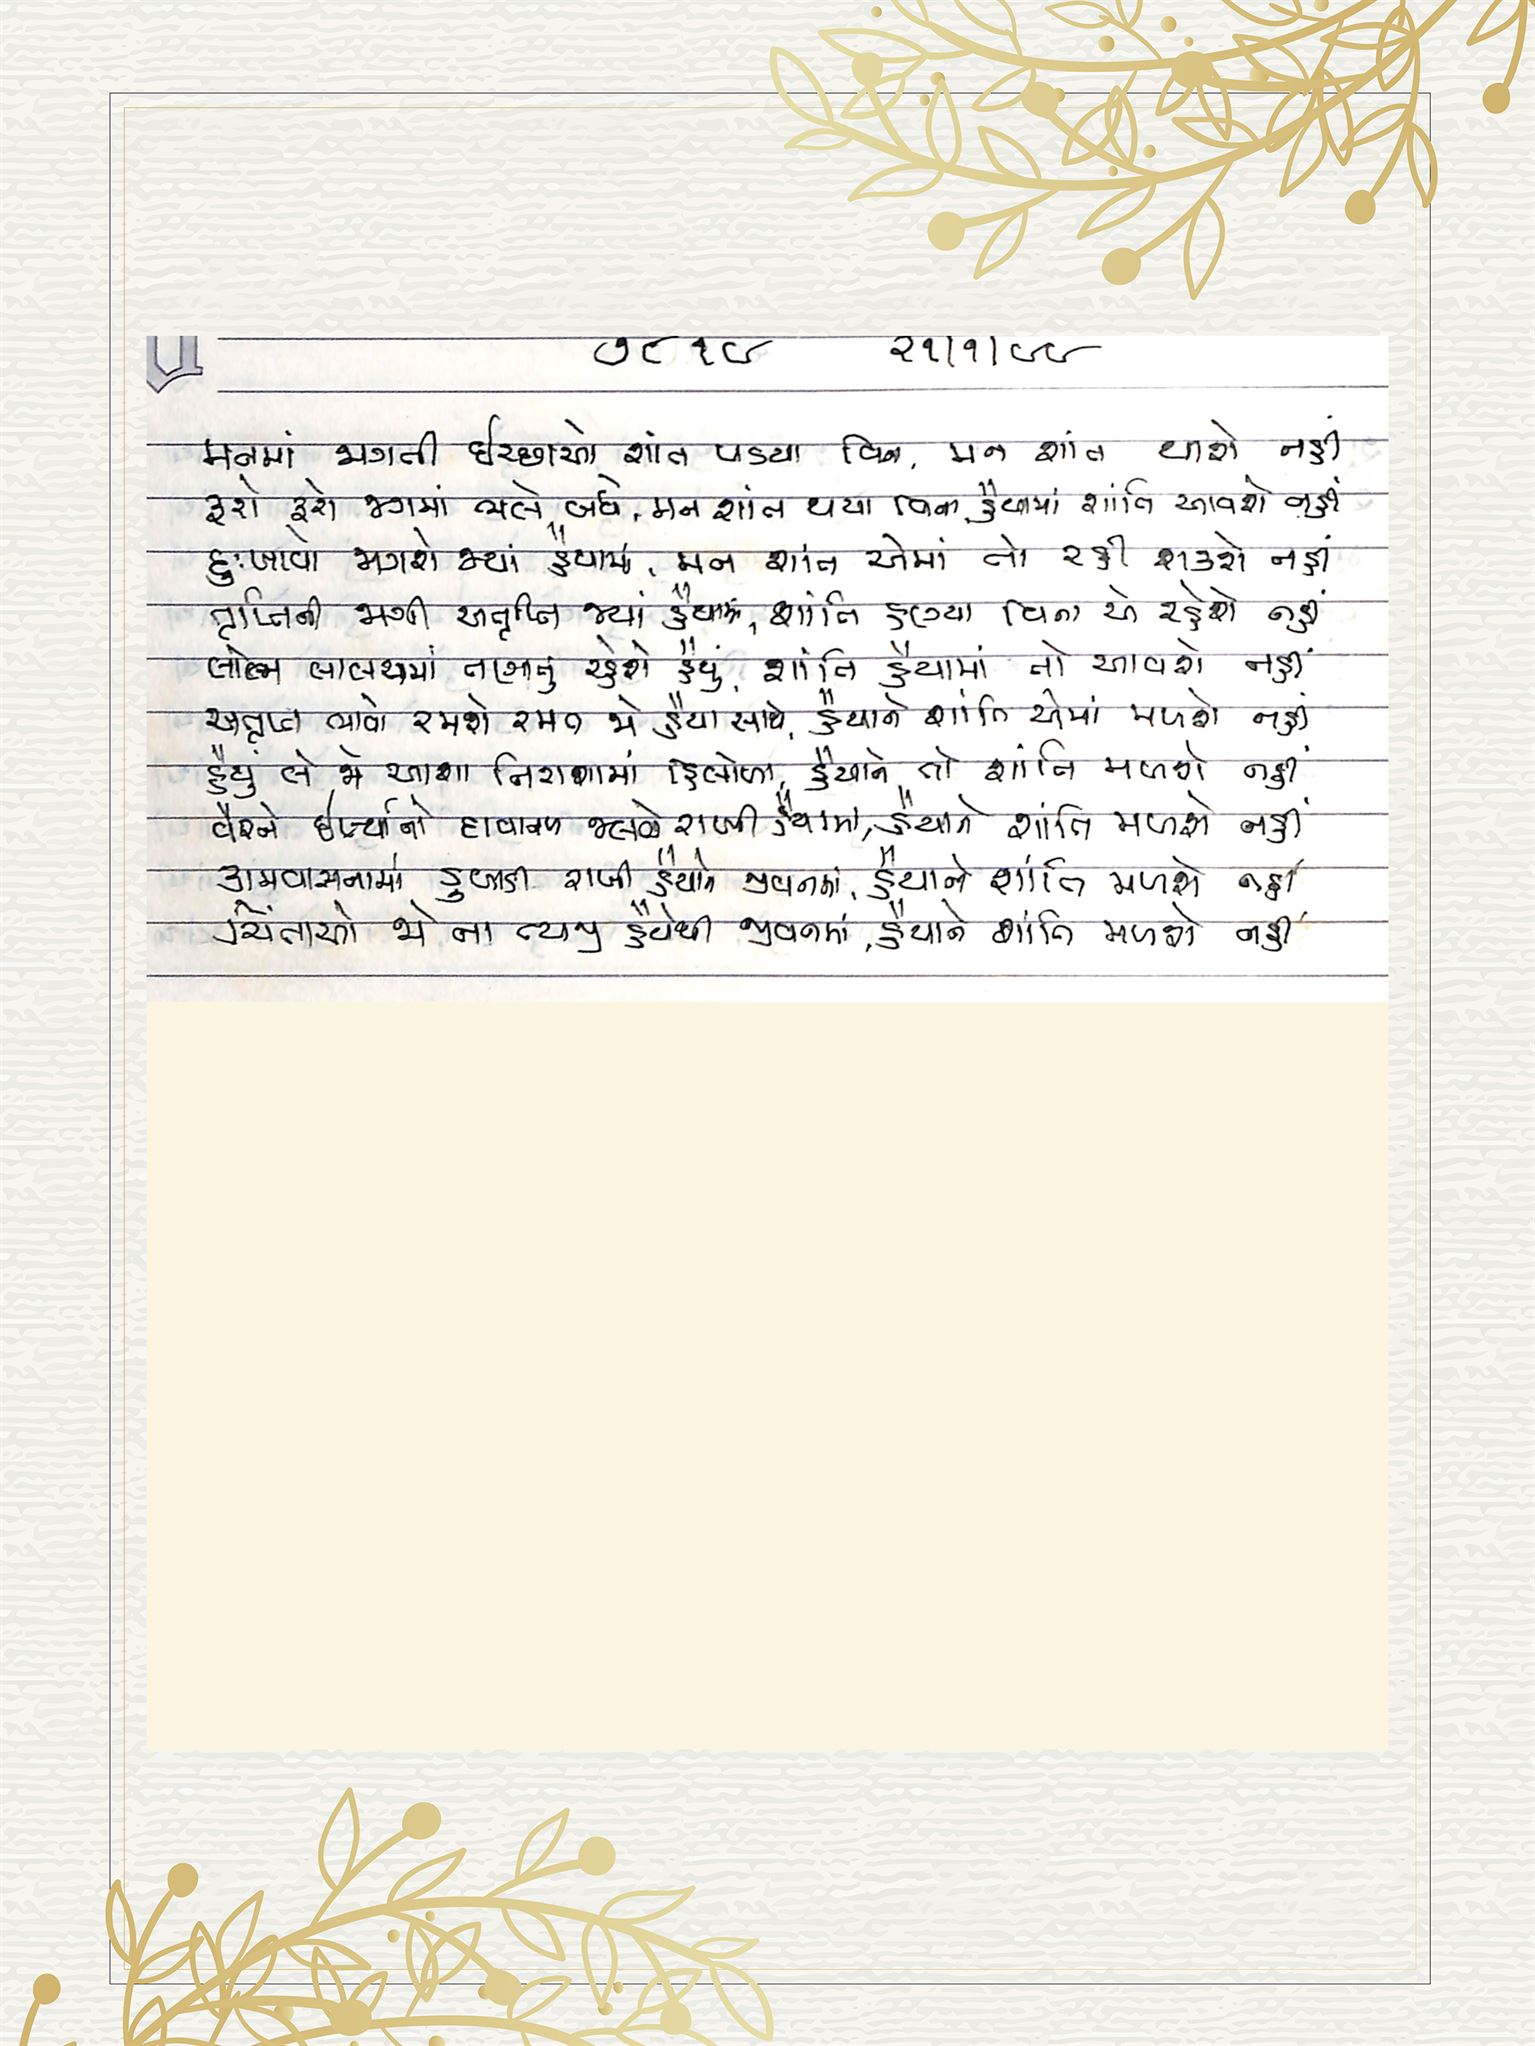 ૭૮૧૯ ૨૧/૧/૯૯
મનમાં જાગતી ઈચ્છાઓ શાંત પડયા વિના, મન શાંત થાશે નહીં
ફરો ફરો જગમાં ભલે બધે, મન શાંત થયા વિના, હૈયામાં શાંતિ આવશે નહીં
દુઃખાવો જાગશે જ્યાં હૈયામાં, મન શાંત એમાં તો રહી શકશે નહીં
તૃપ્તિની જાગી અતૃપ્તિ જ્યાં હૈયામાં, શાંતિ હણ્યા વિના એ રહેશે નહીં
લોભ લાલચમાં તણાતું રહેશે હૈયું, શાંતિ હૈયામાં તો આવશે નહીં
અતૃપ્ત ભાવો રમશે રમત જો હૈયા સાથે, હૈયાને શાંતિ એમાં મળશે નહીં
હૈયું લે જો આશા નિરાશામાં હિલોળા, હૈયાને તો શાંતિ મળશે નહીં
વૈરને ઈર્ષ્યાનો દાવાનળ જલાવી રાખી હૈયામાં, હૈયાને શાંતિ મળશે નહીં
કામવાસનામાં ડુબાડી રાખી હૈયાને જીવનમાં, હૈયાને શાંતિ મળશે નહીં
ચિંતાઓ જો ના ત્યજી હૈયેથી જીવનમાં, હૈયાને શાંતિ મળશે નહીં